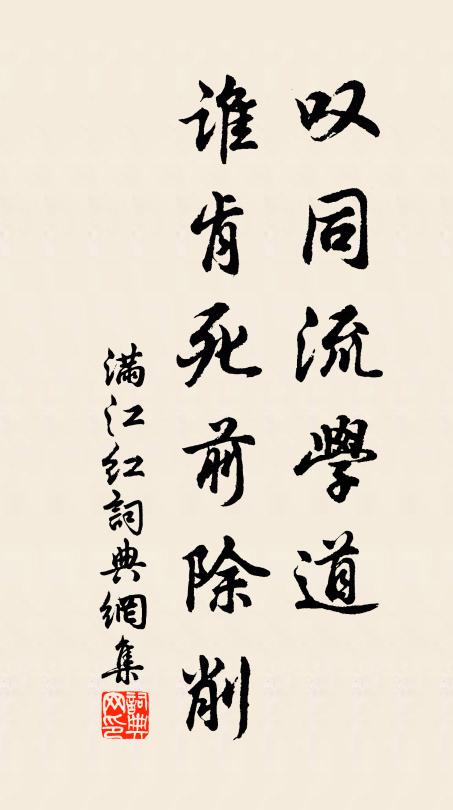 叹同流學道
谁肯死前除削
滿江红詞典網集
詞典网印